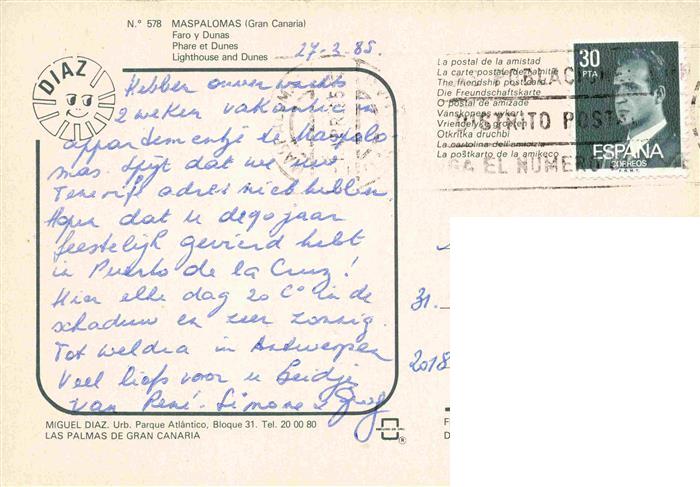 N.° 578 MASPALOMAS (Gran Canaria)
Faro y Dunas
Phare et Dunes
Lighthouse and Dunes
27-2-85.
DIAZ
Hebben onverwachts
2 weken vakantie in
appartementje te Maspalo-
mas. Spijt dat we uw
Tenerife adres niet hebben
Hopen dat u 2 90 jaar
feestelijk gevierd hebt
in Puerto de la Cruz!
Hier elke dag 20 C° in de
schaduw en zeer zonnig.
Tot weldra in Antwerpen
Veel liefs voor u beidjes
van René. Simone &
La postal de la amistad
La carte postale de l'amitié
The friendship postcard
Die Freundschaftskarte
O postal de amizade
Vanskapens vykort
Vriendelijke groeten
Otkritka druchbi
La cartolina dell'amicizia
La poŝtkarto de la amikeco
30
PTA
ESPAÑA
CORREOS
F.N.M.T.
DISTRITO POSTAL
EL NUMERO
31.
2018
MIGUEL DIAZ. Urb. Parque Atlántico, Bloque 31. Tel. 20 00 80
LAS PALMAS DE GRAN CANARIA
F
D